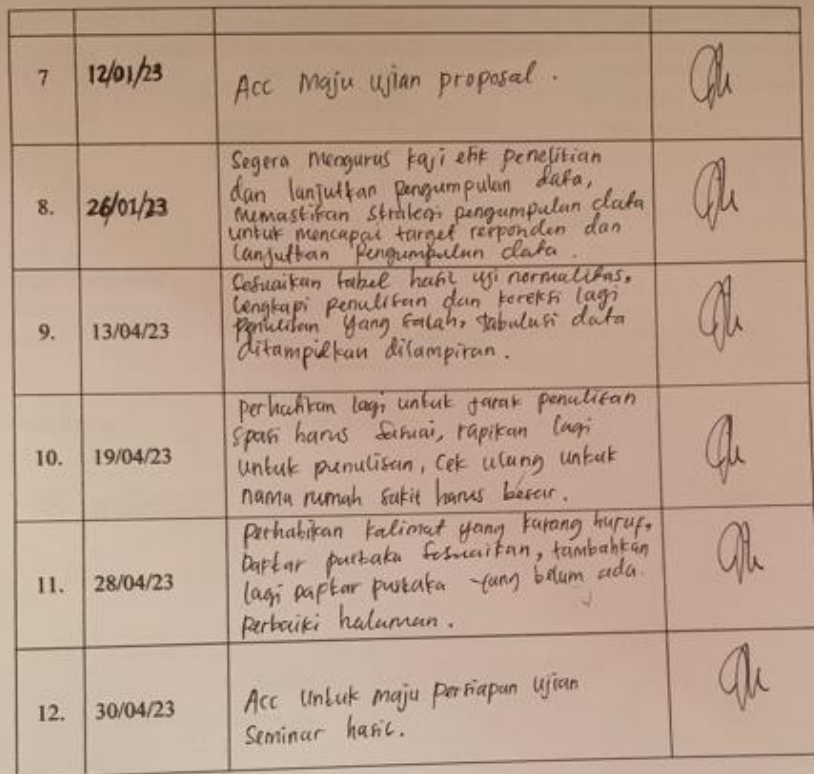 7 12/01/23 Acc Maju ujian proposal .
Segera Mengurus kaji etik penelitian
dan lanjutkan pengumpulan data,
8. 26/01/23 Memastikan strategi pengumpulan data
untuk mencapai target responden dan
lanjutkan Pengumpulan data .
Sesuaikan tabel hasil uji normalitas,
lengkapi penulisan dan koreksi lagi
9. 13/04/23 penulisan yang salah, tabulasi data
ditampilkan dilampiran .
perhatikan lagi untuk jarak penulisan
spasi harus sesuai, rapikan lagi
10. 19/04/23 untuk penulisan, Cek ulang untuk
nama rumah sakit harus besar .
perhatikan kalimat yang kurang huruf,
Daftar pustaka sesuaikan, tambahkan
11. 28/04/23 lagi daftar pustaka yang belum ada.
perbaiki halaman .
12. 30/04/23 Acc Untuk maju persiapan ujian
Seminar hasil .